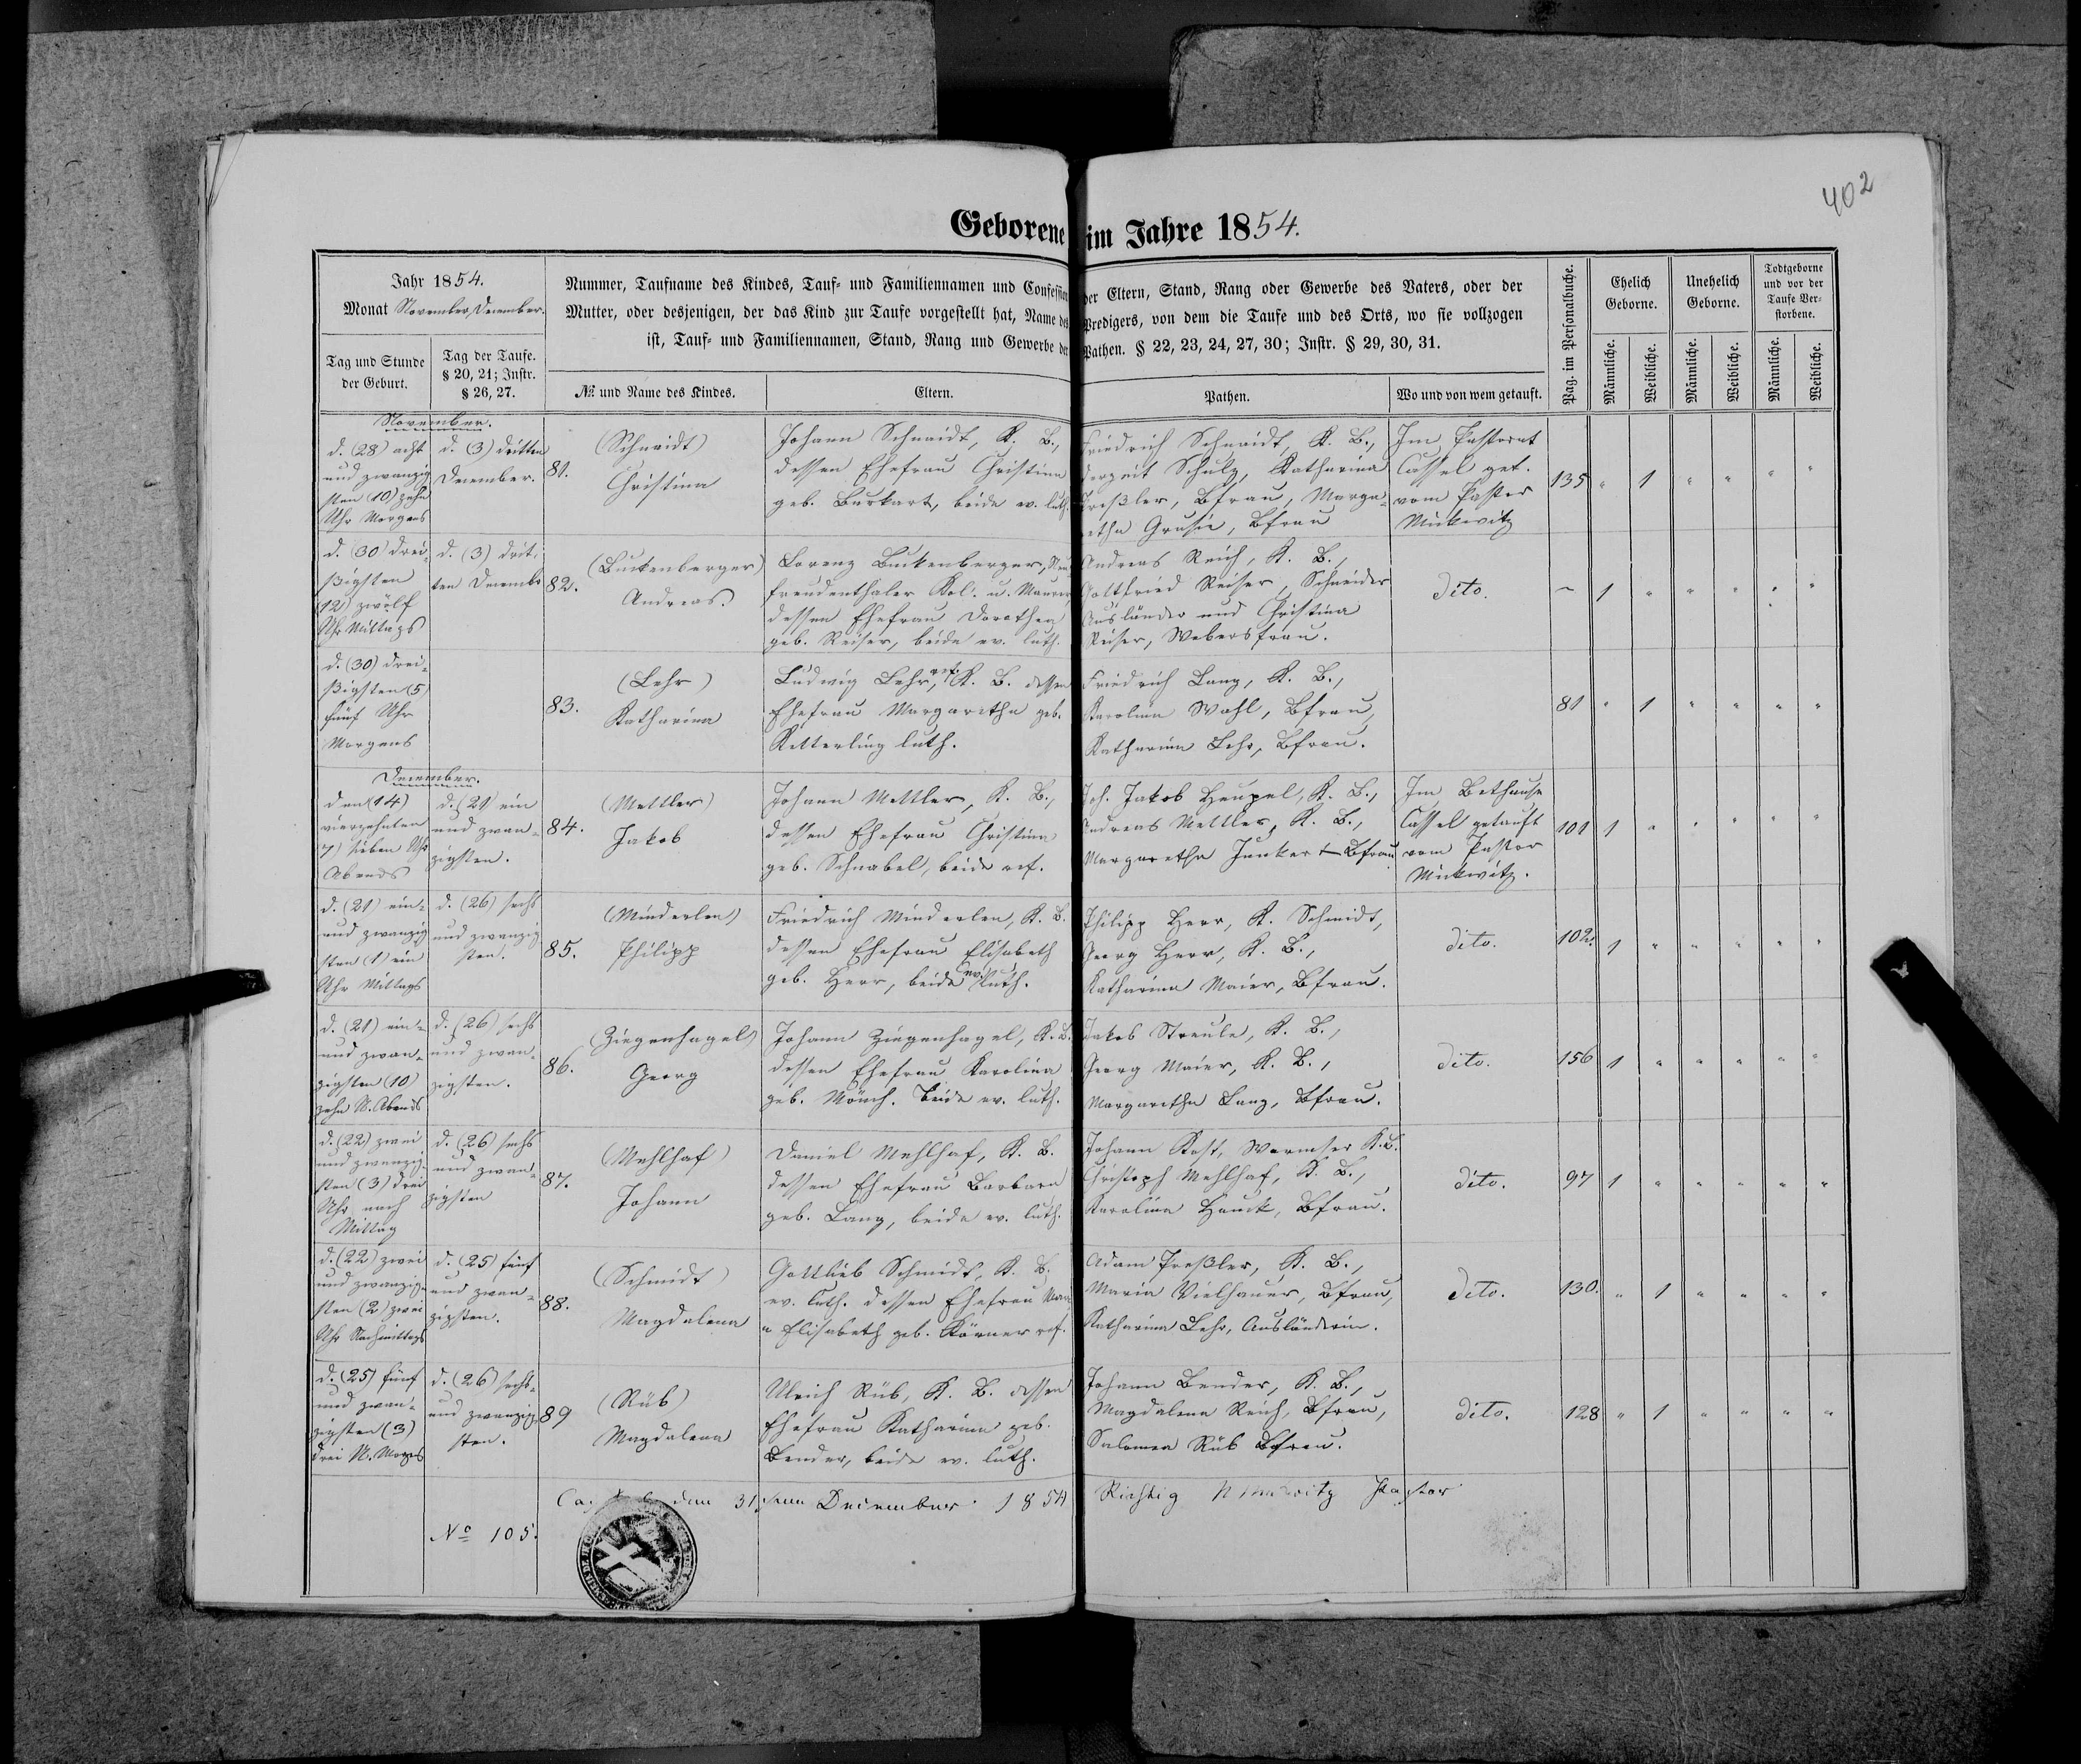 402
Geborene im Jahre 1854.
Jahr 1854.
Monat November, December.
Tag und Stunde
der Geburt.
Tag der Taufe.
§ 20, 21; Instr.
§ 26, 27.
Nummer, Taufname des Kindes, Tauf- und Familiennamen und Confession der Eltern, Stand, Rang oder Gewerbe des Vaters, oder der
Mutter, oder desjenigen, der das Kind zur Taufe vorgestellt hat, Name des Predigers, von dem die Taufe und des Orts, wo sie vollzogen
ist, Tauf- und Familiennamen, Stand, Rang und Gewerbe der Pathen. § 22, 23, 24, 27, 30; Instr. § 29, 30, 31.
№ und Name des Kindes.
Eltern.
Pathen.
Wo und von wem getauft.
Pag. im Personalbuche.
Ehelich
Geborne.
Unehelich
Geborne.
Todtgeborne
und vor der
Taufe Ver-
storbene.
Männliche.
Weibliche.
Männliche.
Weibliche.
Männliche.
Weibliche.
November.
d. (28) acht
und zwanzig
sten (10) zehn
Uhr Morgens
d. (3) dritten
December.
81.
(Schmidt)
Christina
Johann Schmidt, K. B.,
dessen Ehefrau Christina
geb. Burkart, beide ev. luth.
Friedrich Schmidt, K. B.,
derzeit Schulz, Katharina
Preßler, Bfrau, Marga-
retha Grusie, Bfrau
Im Pastorat
Cassel get.
vom Pastor
Mickwitz
135 " 1 " " " "
d. (30) drei-
ßigsten
(12) zwölf
Uhr Mittags
d. (3) drit-
ten Decembr
82.
(Buckenberger)
Andreas.
Lorenz Buckenberger, Neu-
freudenthaler Kol. u. Maurer,
dessen Ehefrau Dorothea
geb. Reiser, beide ev. luth.
Andreas Reich, K. B.,
Gottfried Reiser, Schneider
Ausländer und Christina
Reiser, Webersfrau.
dito.
~ 1 " " " " "
d. (30) drei-
ßigsten (5)
fünf Uhr
Morgens
83.
(Lehr)
Katharina
Ludwig Lehr, ref. K. B. dessen
Ehefrau Margaretha geb.
Ketterling luth.
Friedrich Lang, K. B.,
Karolina Wahl, Bfrau,
Katharina Lehr, Bfrau.
81 " 1 " " " "
December.
den (14)
vierzehnten
7) sieben Uhr
Abends
d. (21) ein
und zwan-
zigsten.
84.
(Mettler)
Jakob
Johann Mettler, K. B.,
dessen Ehefrau Christina
geb. Schnabel, beide ref.
Joh. Jakob Heupel, K. B.,
Andreas Mettler, K. B.,
Margaretha Junkert Bfrau
Im Bethause
Cassel getauft
vom Pastor
Mickwitz.
101 1 " " " " "
d. (21) ein-
und zwanzig
sten (1) ein
Uhr Mittags
d. (26) sechs
und zwanzig
sten.
85.
(Minderlen)
Philipp
Friedrich Minderlen, K. B.
dessen Ehefrau Elisabeth
geb. Herr, beide ev. luth.
Philipp Herr, K. Schmidt,
Georg Herr, K. B.,
Katharina Maier, Bfrau.
dito.
102. 1 " " " " "
d. (21) ein-
und zwan-
zigsten (10)
zehn U. Abends
d. (26) sechs
und zwan-
zigsten.
86.
Ziegenhagel)
Georg
Johann Ziegenhagel, K. B.
dessen Ehefrau Karolina
geb. Mönch. beide ev. luth.
Jakob Straule, K. B.,
Georg Maier, K. B.,
Margaretha Lang, Bfrau.
dito.
156 1 " " " " "
d. (22) zwei
und zwanzig-
sten (3) drei
Uhr nach
Mittag
d. (26) sechs
und zwan-
zigsten
87.
(Mehlhaf)
Johann
Daniel Mehlhaf, K. B.
dessen Ehefrau Barbara
geb. Lang, beide ev. luth.
Johann Kost, Wormser K. B.
Christoph Mehlhaf, K. B.,
Karolina Hauck, Bfrau.
dito.
97 1 " " " " "
d. (22) zwei
und zwanzig-
sten (2) zwei
Uhr Nachmittags
d. (25) fünf
und zwan-
zigsten.
88.
(Schmidt)
Magdalena
Gottlieb Schmidt, K. B.
ev. luth. dessen Ehefrau
Elisabeth geb. Körner ref.
Adam Preßler, K. B.,
Maria Vielhauer, Bfrau,
Katharina Lehr, Ausländerin.
dito.
130. " 1 " " " "
d. (25) fünf
und zwan-
zigsten (3)
drei U. Morgs
d. (26) sechs-
und zwanzig
sten.
89
(Rüb)
Magdalena
Ulrich Rüb, K. B. dessen
Ehefrau Katharina geb.
Bender, beide ev. luth.
Johann Bender, K. B.,
Magdalena Reich, Bfrau,
Salomea Rüb Bfrau.
dito.
128 " 1 " " " "
den 31. December 1854
Richtig Pastor
№ 105.